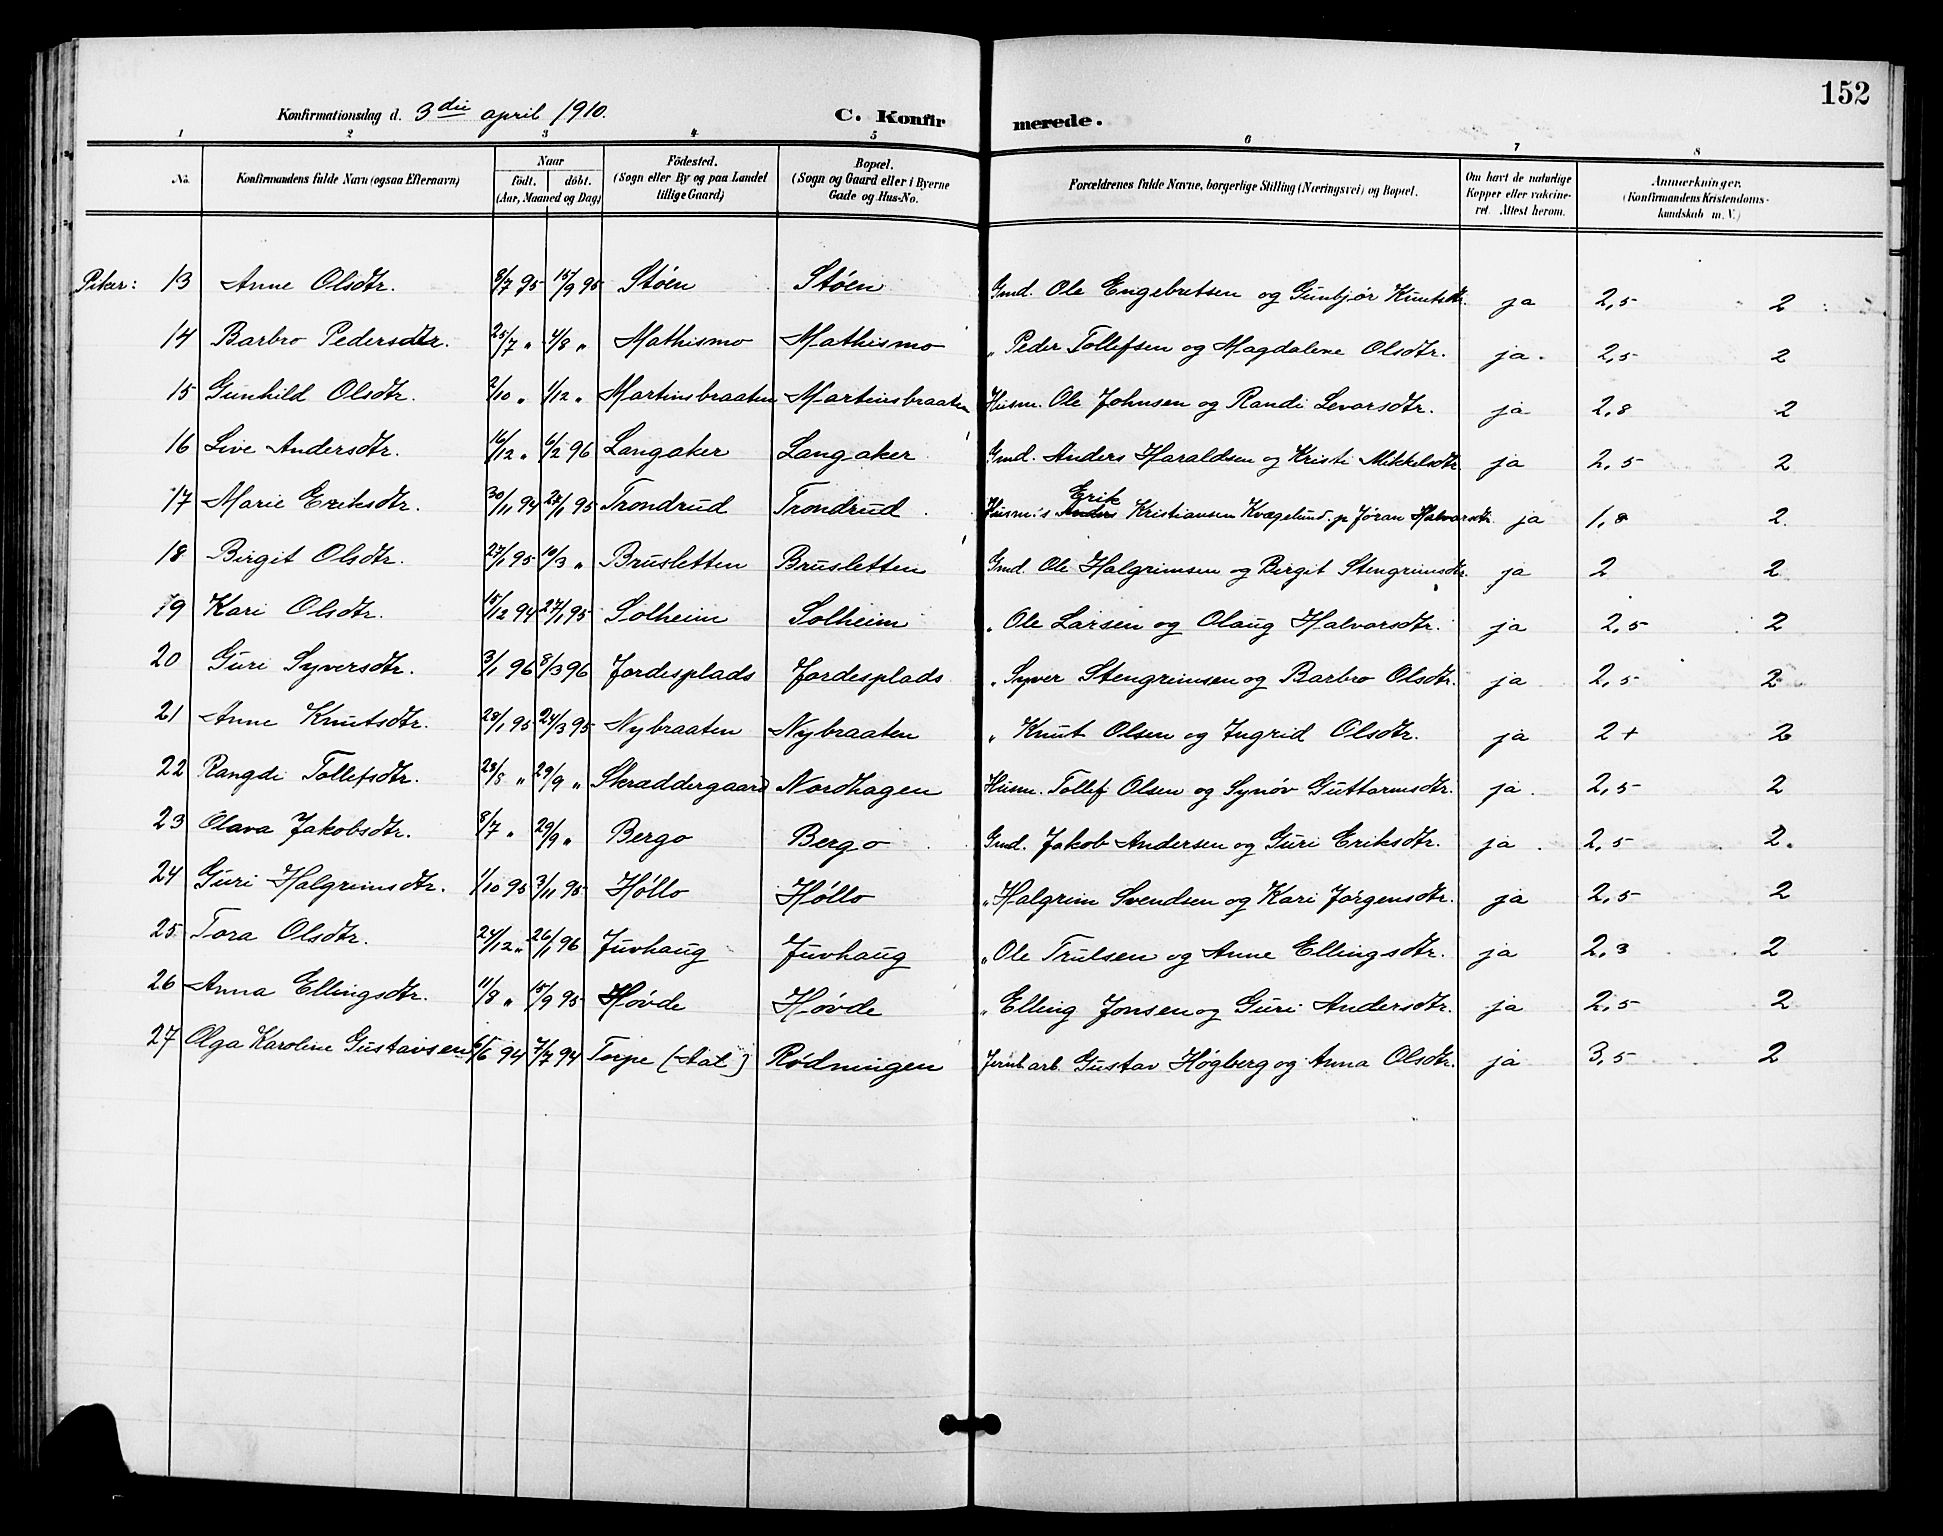 152
Konfirmationsdag d. 3die april 1910. C. Konfirmerede.
1 2 3 4 5 6 7 8
No. Konfirmandens fulde Navn (ogsaa Efternavn) Naar födt. döbt. (Aar, Maaned og Dag) Födested. (Sogn eller By og paa Landet tillige Gaard) Bopæl. (Sogn og Gaard eller i Byerne Gade og Hus-No. Forældrenes fulde Navne, borgerlige Stilling (Næringsvei) og Bopæl. Om havt de naturlige Kopper eller vakcineret. Attest herom. Anmærkninger. (Konfirmandens Kristendomskundskab m. V.)
Piker: 13 Anne Olsdtr. 8/7 95 15/9 95 Støen Støen Gmd. Ole Engebretsen og Gunbjør Knutsdtr. ja 2,5 2
14 Barbro Pedersdtr. 25/7 " 4/8 " Mathismo Mathismo " Peder Tollefsen og Magdalene Olsdtr. ja. 2,5 2
15 Gunhild Olsdtr. 2/10 " 1/12 " Martinsbraaten Martinsbraaten Husm. Ole Johnsen og Randi Levorsdtr. ja 2,8 2
16 Live Andersdtr. 16/12 " 6/2 96 Langaker Langaker Gmd. Anders Haraldsen og Kristi Mikkelsdtr ja 2,5 2
17 Marie Eriksdtr. 30/11 94 27/1 95 Trondrud Trondrud Husm's Anders Erik Kristiansen Kvægelund. og Jøran Halvorsdtr. ja 1,8 2
18 Birgit Olsdtr. 27/1 95 10/3 " Brusletten Brusletten Gmd. Ole Halgrimsen og Birgit Stengrimsdtr. ja 2 2
19 Kari Olsdtr. 15/12 94 27/1 95 Solheim Solheim " Ole Larsen og Olaug Halvorsdtr. ja 2,5 2
20 Guri Syversdtr. 3/1 96 8/3 96 Jordesplads Jordesplads " Syver Stengrimsen og Barbro Olsdtr. ja 2,5 2
21 Anne Knutsdtr. 28/1 95 24/3 95 Nybraaten Nybraaten " Knut Olsen og Ingrid Olsdtr. ja 2+ 2
22 Rangdi Tollefsdtr. 28/5 " 29/9 " Skraddergaard Nordhagen Husm. Tollef Olsen og Synøv Guttormsdtr. ja. 2,5 2
23 Olava Jakobsdtr. 8/7 " 29/9 " Bergo Bergo Gmd. Jakob Andersen og Guri Eriksdtr. ja 2,5 2.
24 Guri Halgrimsdtr. 1/10 95 3/11 95 Höllo Höllo " Halgrim Svendsen og Kari Jörgensdtr. ja 2,5 2
25 Tora Olsdtr. 24/12 " 26/1 96 Juvhaug Juvhaug " Ole Trulsen og Anne Ellingsdtr. ja 2,3 2
26 Anna Ellingsdtr. 11/8 " 15/9 95 Høvde Høvde " Elling Jonsen og Guri Andersdtr. ja 2,5 2
27 Olga Karoline Gustavsen /6 94 7/7 94 Torpe (Aal) Rødningen Jernb.arb. Gustav Högberg og Anna Olsdtr. ja 3,5 2